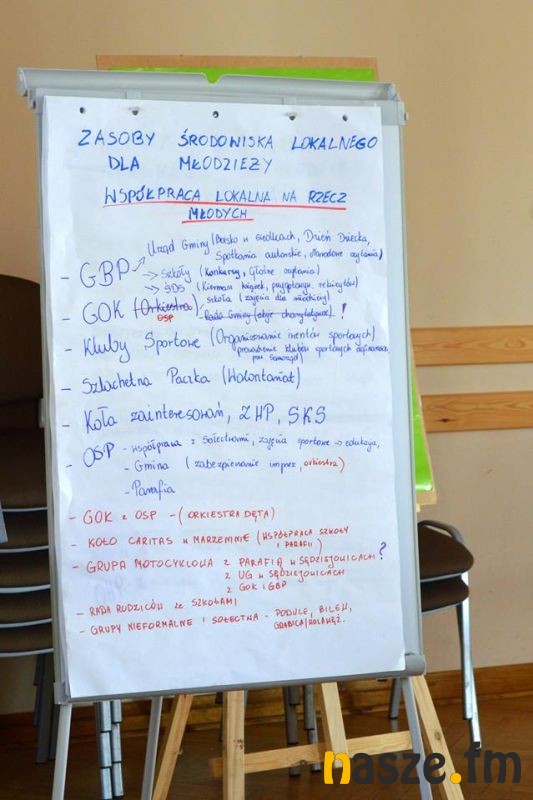 ZASOBY ŚRODOWISKA LOKALNEGO
DLA MŁODZIEŻY
WSPÓŁPRACA LOKALNA NA RZECZ
MŁODYCH
Urząd Gminy (Boisko w siodłkach, Dzień Dziecka,
Spotkania autorskie, Narodowe czytanie)
- GBP
→ Szkoły (Konkursy, Głośne czytania)
→ ŚDS (Kiermasz książek, przygotowan. rekwizytów)
- GOK (Orkiestra) szkoła (zajęcia dla młodzieży)
OSP
Rada Gminy (akcje charytatywne) !
- Kluby Sportowe (Organizowanie eventów sportowych)
prowadzenie klubów sportowych
przez Samorząd
- Szlachetna Paczka (Wolontariat)
- Koła zainteresowań, ZHP, SKS
- OSP - współpraca z sołectwami, zajęcia sportowe → edukacja,
- Gmina (zabezpieczanie imprez, orkiestra)
- Parafia
- GOK z OSP - (ORKIESTRA DĘTA)
- KOŁO CARITAS W MARZENINIE (WSPÓŁPRACA SZKOŁY
I PARAFII)
- GRUPA MOTOCYKLOWA Z PARAFIĄ W SĘDZIEJOWICACH ?
Z UG W SĘDZIEJOWICACH
Z GOK i GBP
- RADA RODZICÓW ze SZKOŁAMI
- GRUPY NIEFORMALNE I SOŁECTWA - PODULE, BILEW,
GRABICA/
nasze.fm